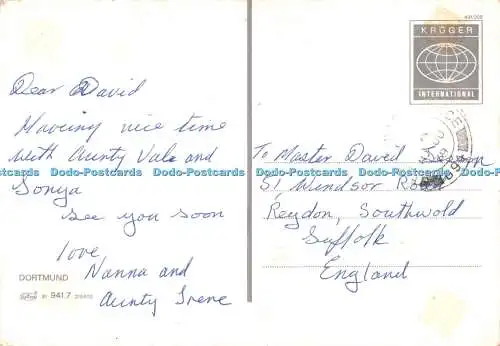 Dear David
Haveing nice time
with Aunty Vale and
Sonya
See you soon
love
Nanna and
Aunty Irene
DORTMUND
941.7
KRÜGER
INTERNATIONAL
To Master David
51 Windsor Road
Reydon, Southwold
Suffolk
England
Dodo-Postcards Dodo-Postcards Dodo-Postcards Dodo-Postcards
Dodo-Postcards Dodo-Postcards Dodo-Postcards Dodo-Postcards